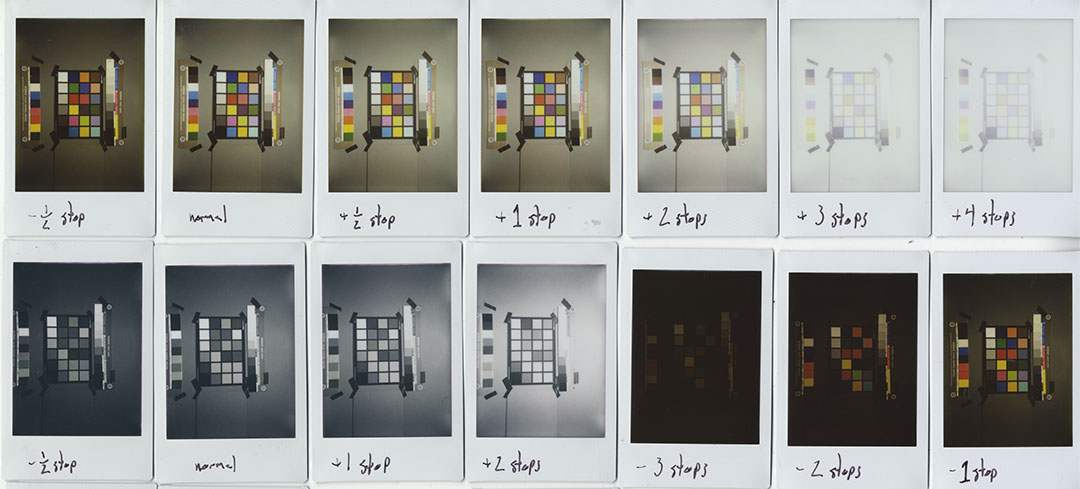 - 1/2 stop
normal
+ 1/2 stop
+ 1 stop
+ 2 stops
+ 3 stops
+ 4 stops
- 1/2 stop
normal
+ 1 stop
+ 2 stops
- 3 stops
- 2 stops
- 1 stop